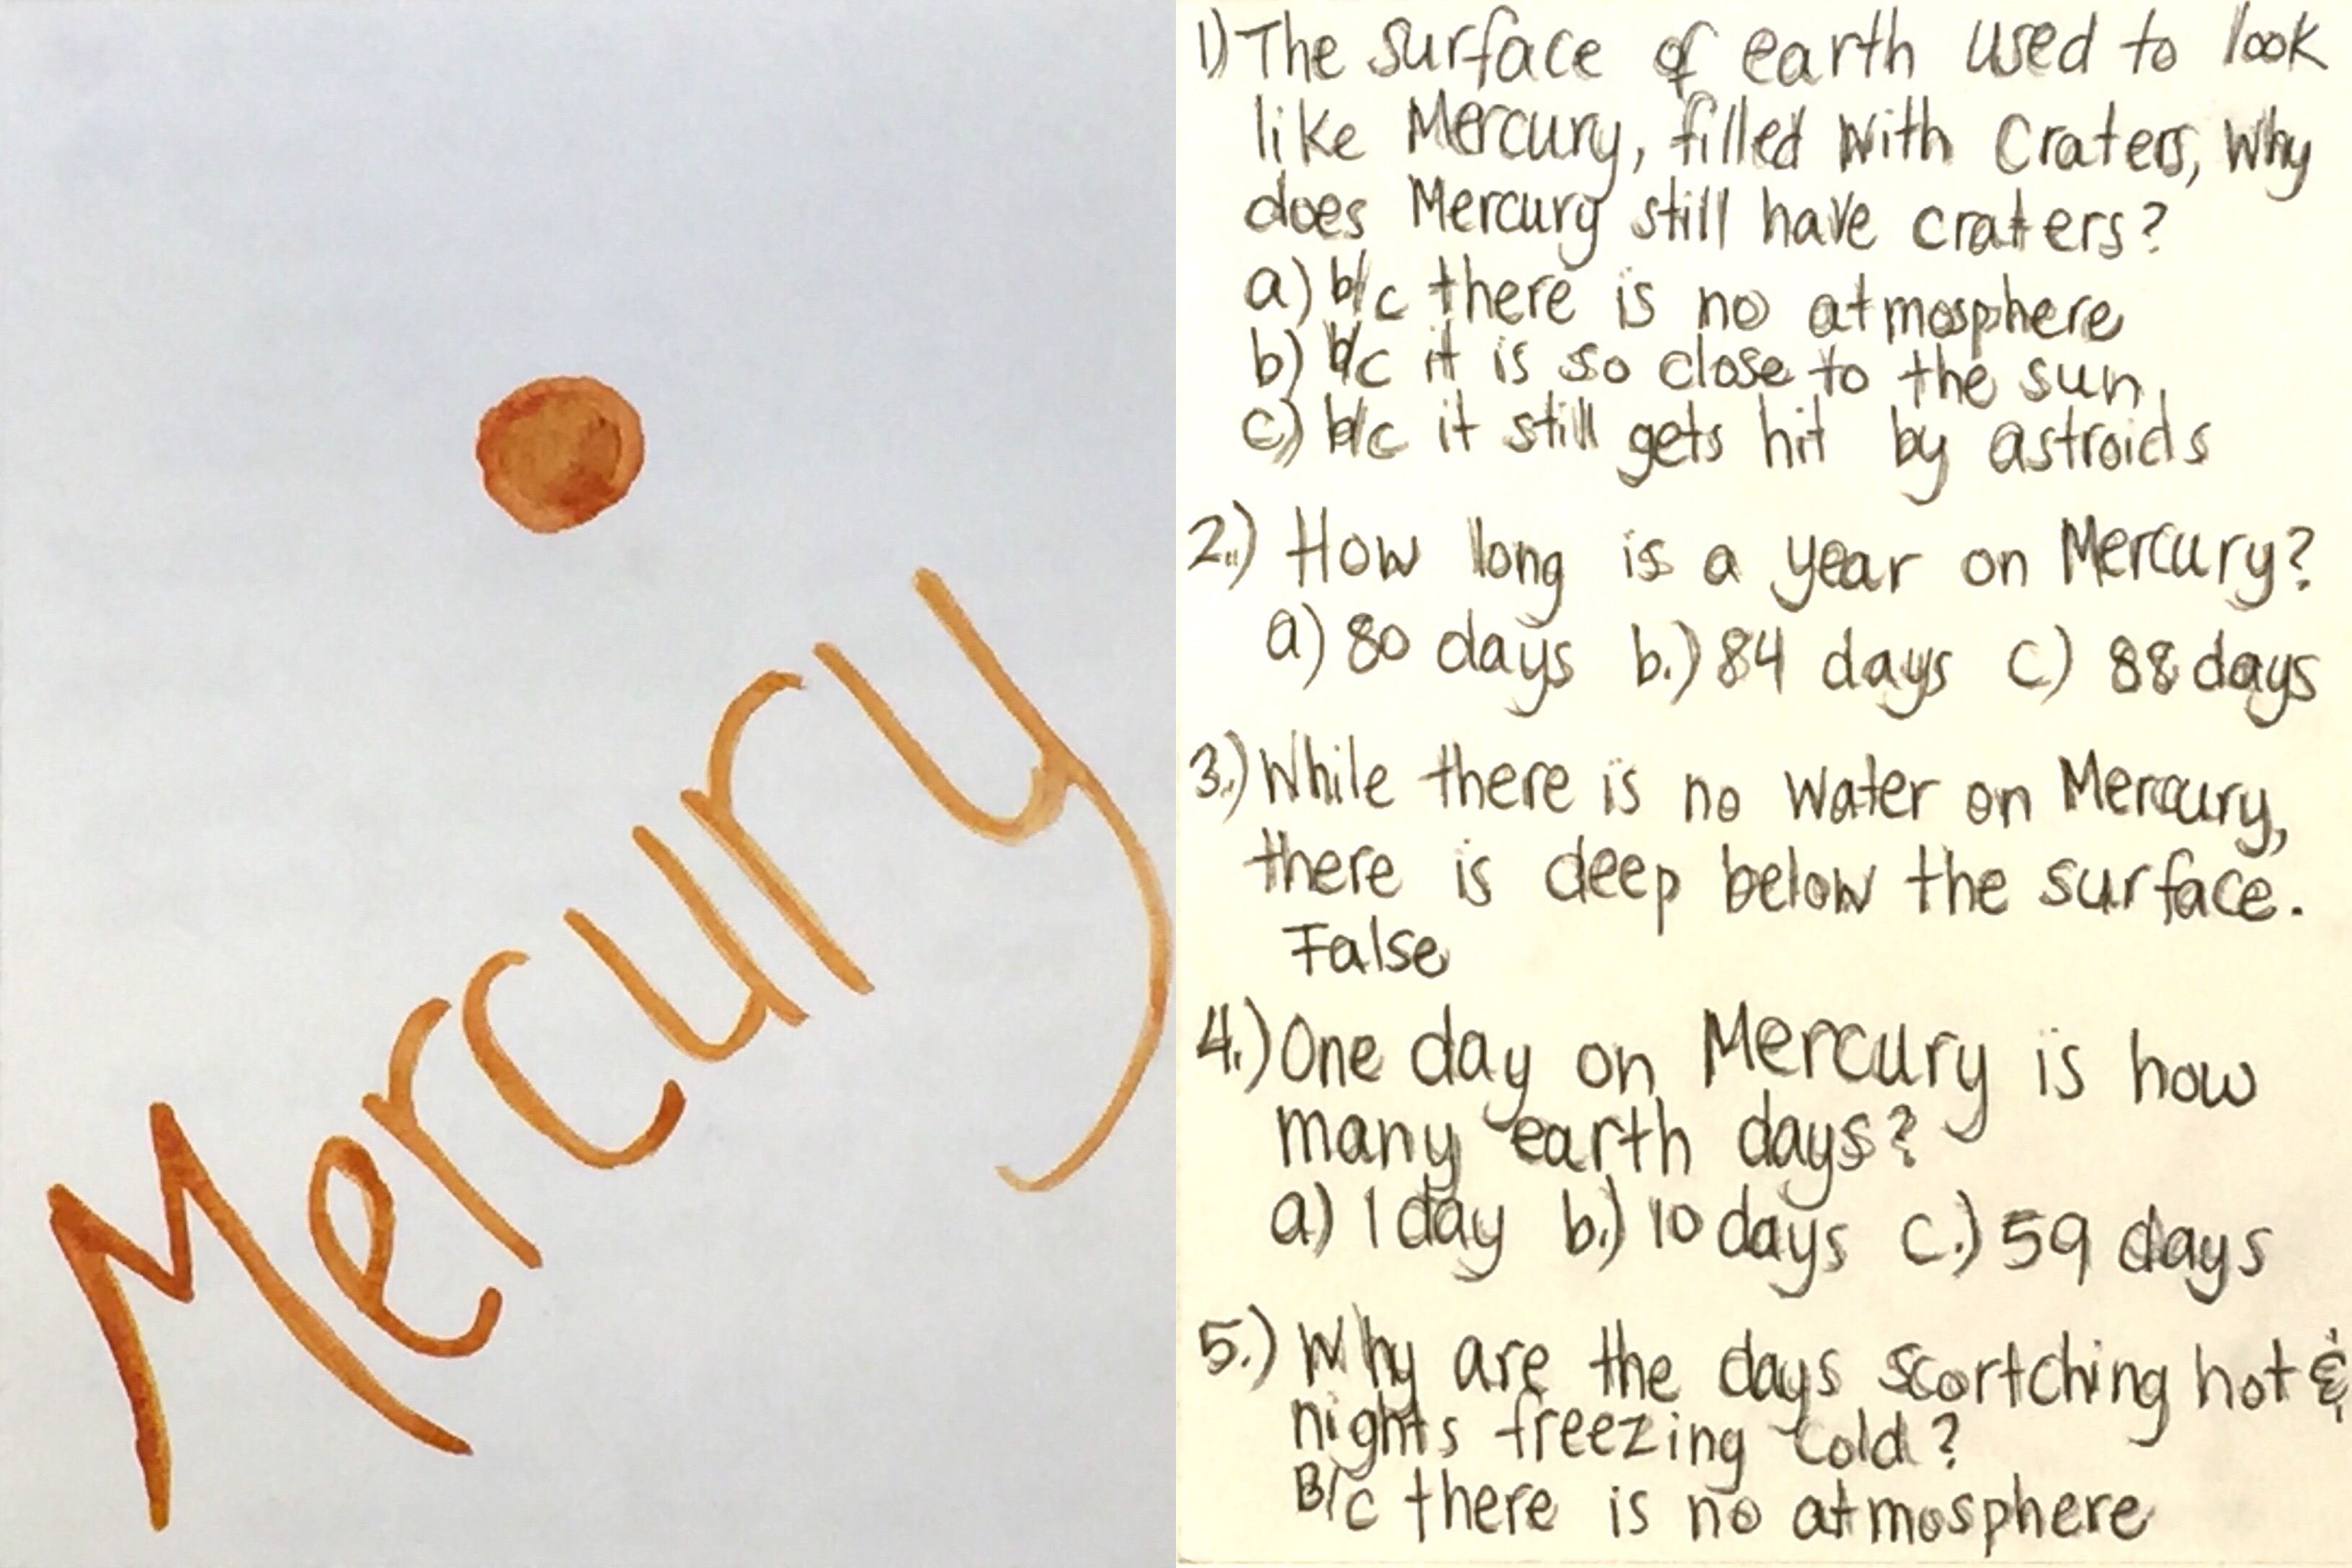 Mercury
1) The surface of earth used to look
like Mercury, filled with craters, why
does Mercury still have craters?
a) b/c there is no atmosphere
b) b/c it is so close to the sun.
c) b/c it still gets hit by astroids
2.) How long is a year on Mercury?
a) 80 days b.) 84 days c) 88 days
3.) While there is no water on Mercury,
there is deep below the surface.
False
4.) One day on Mercury is how
many earth days?
a) 1 day b.) 10 days c.) 59 days
5.) Why are the days scortching hot &
nights freezing cold?
B/c there is no atmosphere